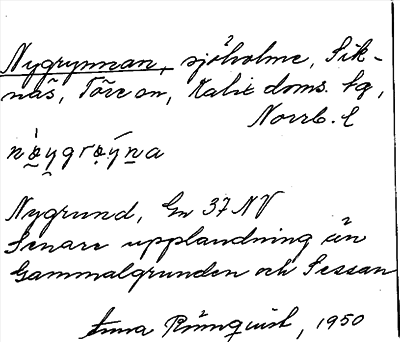 Nygrynnan, sjöholme, Sik-
näs, Töre sn, Kalix doms. tg,
Norrb. l
Nygrund, Gn 37 NV
Senare upplandning än
Gammalgrunden och Sessan
Anna Rönnqvist, 1950